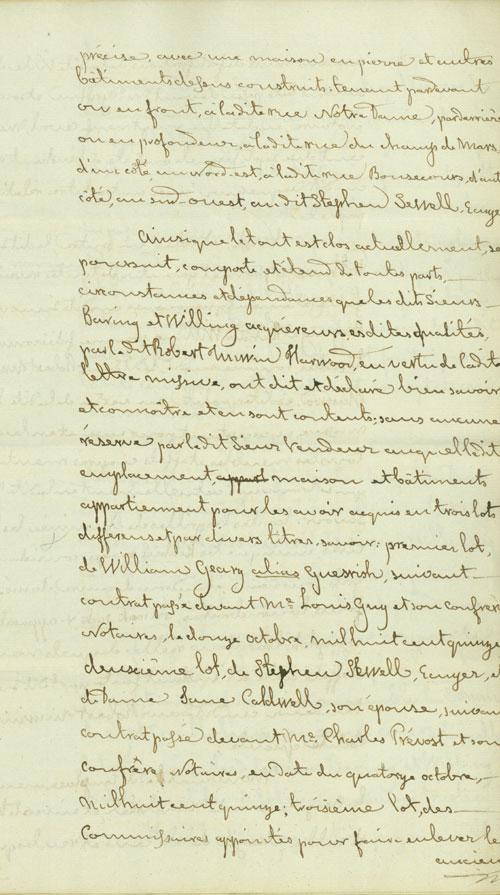 précise, avec une maison en pierre et autres
bâtiments dessus construits: tenant pardevant
ou en front, à ladite rue Notre Dame, parderrière
ou en profondeur, à ladite rue du champ de Mars,
d'un côté, au nord-est, à ladite rue Bonsecours, d'aut
côté, au sud-ouest, audit Stephen Sewell, Ecuyer
Ainsi que le tout est clos actuellement, se
poursuit, comporte et étend de toutes parts,
circonstances et dépendances que les dits Sieurs
Baring et Willing acquéreurs, èsdites qualités,
par ledit Robert Unwin Harwood, en vertu de ladite
lettre missive, ont dit et déclaré bien savoir
et connoître et en sont contents; sans aucune
réserve par ledit Sieur Vendeur auquel ledit
emplacement appart maison et bâtiments
appartiennent pour les avoir acquis en trois lots
différens et par divers titres, savoir: premier lot,
de William Geary alias Guesrish, suivant
contrat passé devant Me. Louis Guy et son confrère
Notaires, le douze octobre, mil huit cent quinze
deuxième lot, de Stephen Sewell, Ecuyer, et
de Dame Jane Caldwell, son épouse, suivan
contrat passé devant Me. Charles Prévost et son
confrère, Notaires, en date du quatorze octobre,
mil huit cent quinze; troisième lot, des
Commissaires appointés pour faire enlever le
ancien